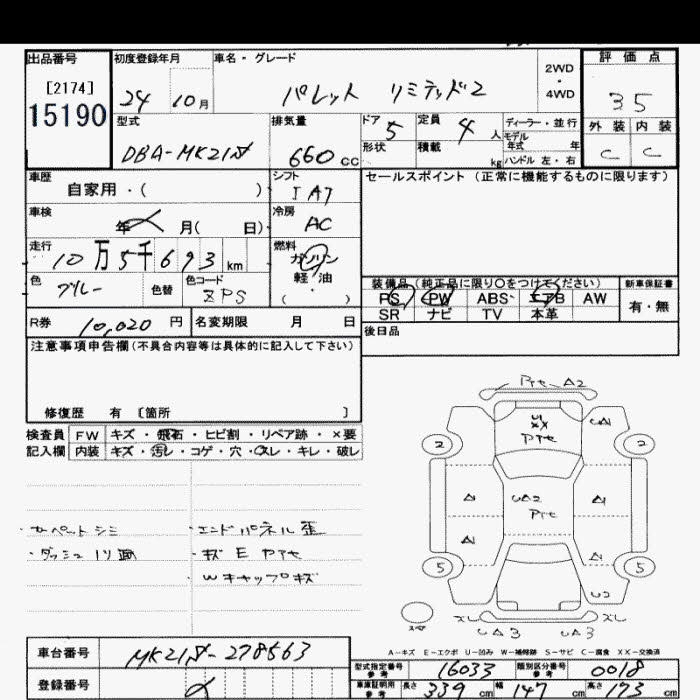 出品番号 初度登録年月 車名・グレード 評価点
[2174] 24 10月 パレット リミテッド2 2WD・4WD 35
15190 型式 排気量 ドア 定員 ディーラー・並行 外装 内装
DBA-MK21S 660cc 5 4人 モデル年式 年 C C
形状 積載 kg ハンドル 左・右
車歴 シフト セールスポイント(正常に機能するものに限ります)
自家用・( ) IAT
車検 冷房
年 月( 日) AC
走行 燃料
10万5千693km ガソリン
色 色替 色コード 軽・油
グレー ZPS ( )
装備品(純正品に限り○をつけてください) 新車保証書
PS PW ABS エアB AW 有・無
SR ナビ TV 本革
R券 10,020円 名変期限 月 日
後日品
注意事項申告欄(不具合内容等は具体的に記入して下さい)
修復歴 有 [箇所 ]
検査員 FW キズ・飛石・ヒビ割・リペア跡・×要
記入欄 内装 キズ・汚レ・コゲ・穴・スレ・キレ・破レ
・カーペットシミ ・エンドパネル歪
・ダッシュ ・キズ E ヤケ
・Wキャップキズ
A2
XX
2 2
A1 UA2 A1
A1 A1
5 5
U2
UA3 UA3
A-キズ E-エクボ U-凹み W-補修跡 S-サビ C-腐食 XX-交換済
車台番号 MK21S-278563
登録番号
型式指定番号 参考 16033 類別区分番号 参考 0018
車庫証明用 参考 長さ 339cm 幅 147cm 高さ 173cm